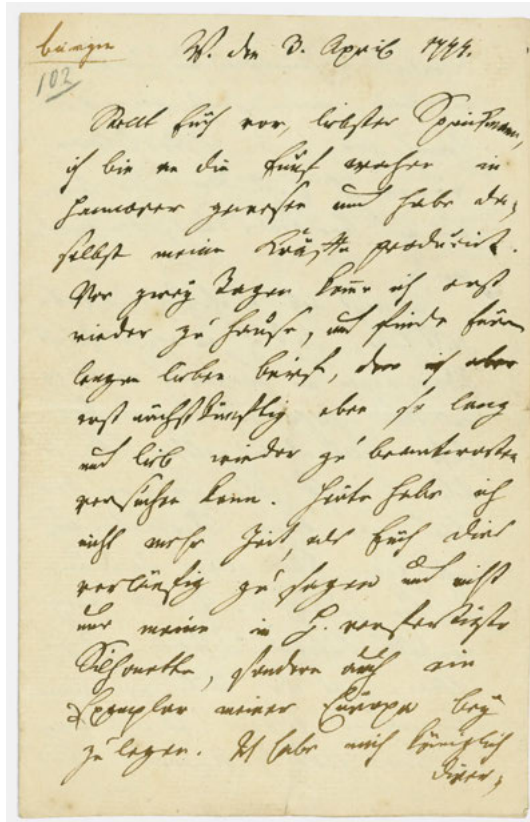 bürger
102
W. den 3. April 1777.
Stellt Euch vor, liebster Sprickmann,
ich bin an die fünf wochen in
Hannover gewesen und habe da-
selbst meine Kräffte producirt.
Vor zwey Tagen kam ich erst
wieder zu Hause, und finde Euern
langen lieben brief, den ich aber
erst nächstkünftig eben so lang
und lieb wieder zu beantworten
versuchen kann. Heüte habe ich
nicht mehr Zeit, als Euch dies
vorläufig zu sagen und nicht
nur meine in H. verfertigte
Silhouette, sondern auch ein
Exemplar meiner Europa bey
zu legen. Ich habe mich königlich
diver-